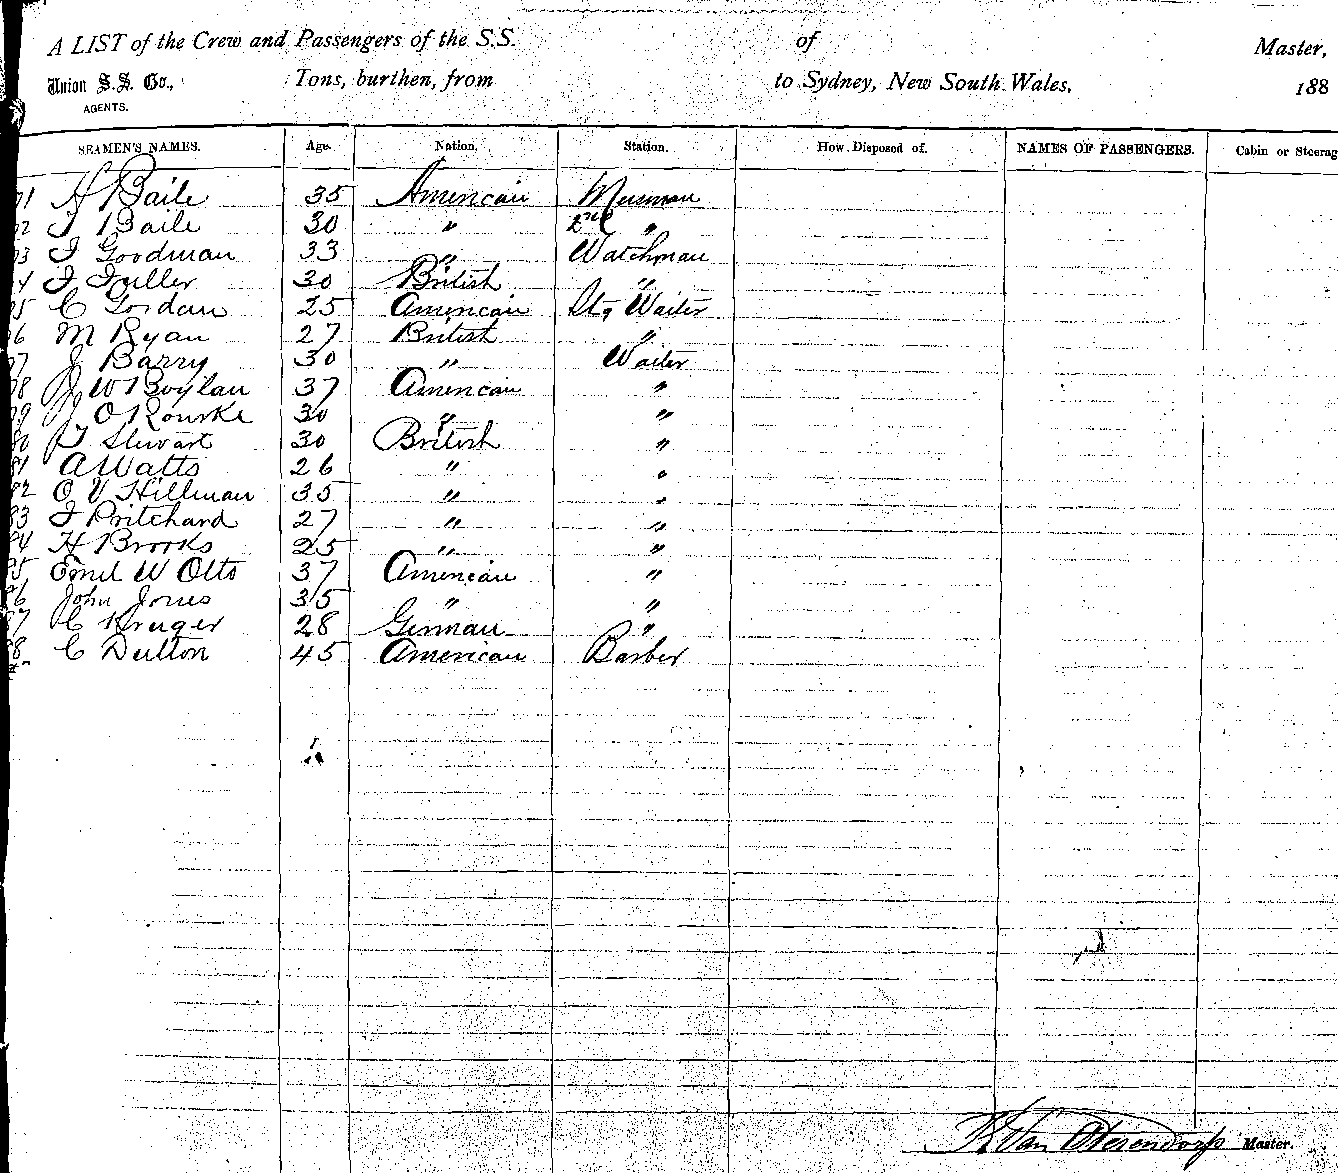 A LIST of the Crew and Passengers of the S.S. of Master,
Union S.S. Co., Tons, burthen, from to Sydney, New South Wales, 188
AGENTS.
SEAMEN'S NAMES. Age. Nation. Station. How Disposed of. NAMES OF PASSENGERS. Cabin or Steerag
71 H Baile 35 American Messman
72 J Baile 30 " 2nd "
73 J Goodman 33 " Watchman
74 J Fuller 30 British "
75 C Jordan 25 American Stg Waiter
76 M Ryan 27 British "
77 J Barry 30 " Waiter
78 J W Boylan 37 American "
79 J O Rourke 30 " "
80 J Stewart 30 British "
81 A Watts 26 " "
82 O V Hillman 35 " "
83 J Pritchard 27 " "
84 H Brooks 25 " "
85 Emil W Otto 37 American "
86 John Jones 35 " "
87 C Kruger 28 German "
88 C Dutton 45 American Barber
Van Oterendorp Master.